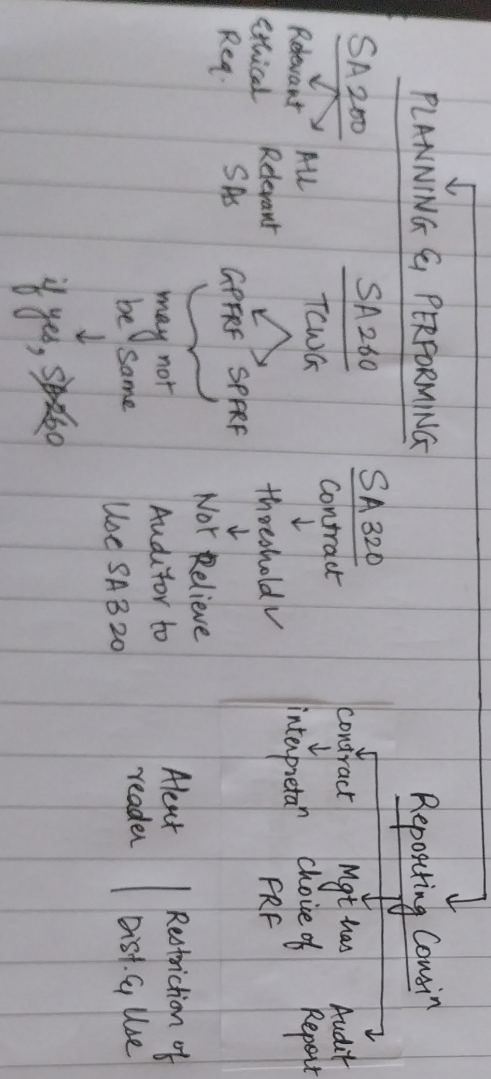 PLANNING & PERFORMING
SA 200
Relevant
Ethical
Req.
All
Relevant
SAs
SA 260
TCWG
GPFRF SPFRF
may not
be same
if yes, SA260
SA 320
Contract
threshold
Not Relieve
Auditor to
Use SA 320
Reporting Consiⁿ
contract
interpretaⁿ
Mgt has
choice of
FRF
Audit
Report
Alert
reader
Restriction of
Dist. & Use